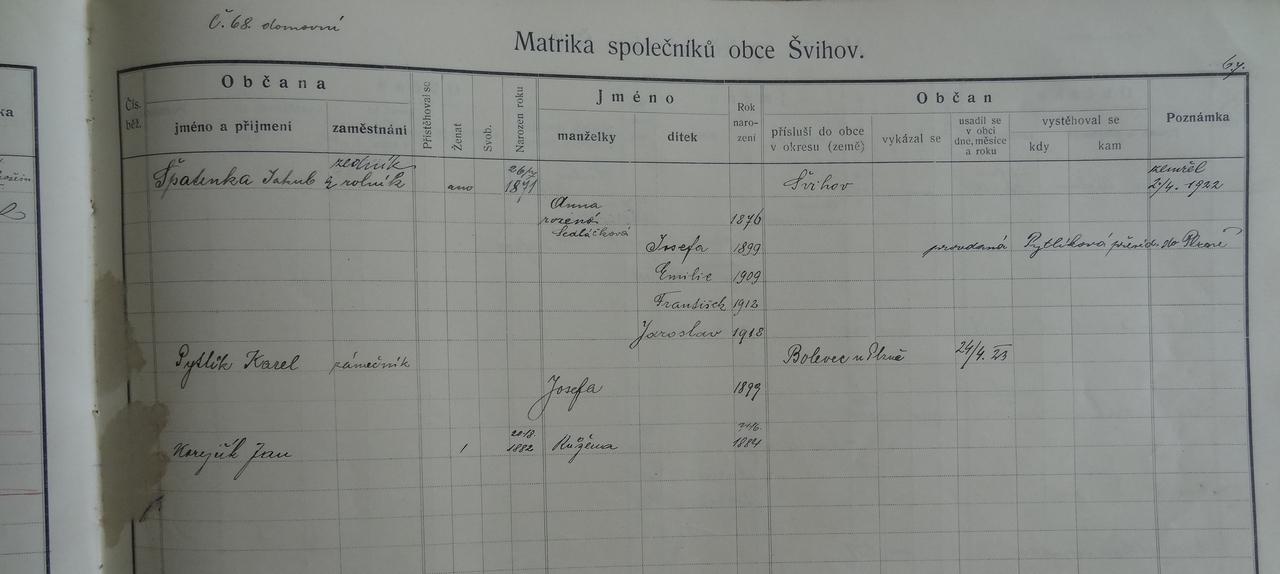 Č. 68. domovní
Matrika společníků obce Švihov.
67.
Čís. běž.
Občana
jméno a přijmení
zaměstnání
Přistěhoval se
Ženat
Svob.
Narozen roku
Jméno
manželky
dítek
Rok naro- zení
Občan
přísluší do obce v okresu (země)
vykázal se
usadil se v obci dne, měsíce a roku
vystěhoval se
kdy
kam
Poznámka
Špatenka Jakub zedník & rolník ano 1871 Švihov zemřel 1922
Anna
rozená 1876
Sedláčková
Josefa 1899 provdaná Pytlíková do Plzně
Emilie 1909
František 1912
Jaroslav 1918
Pytlík Karel zámečník Bolevec u Plzně 24/4. 23
Josefa 1899
Jan 1 1882 Růžena 1884